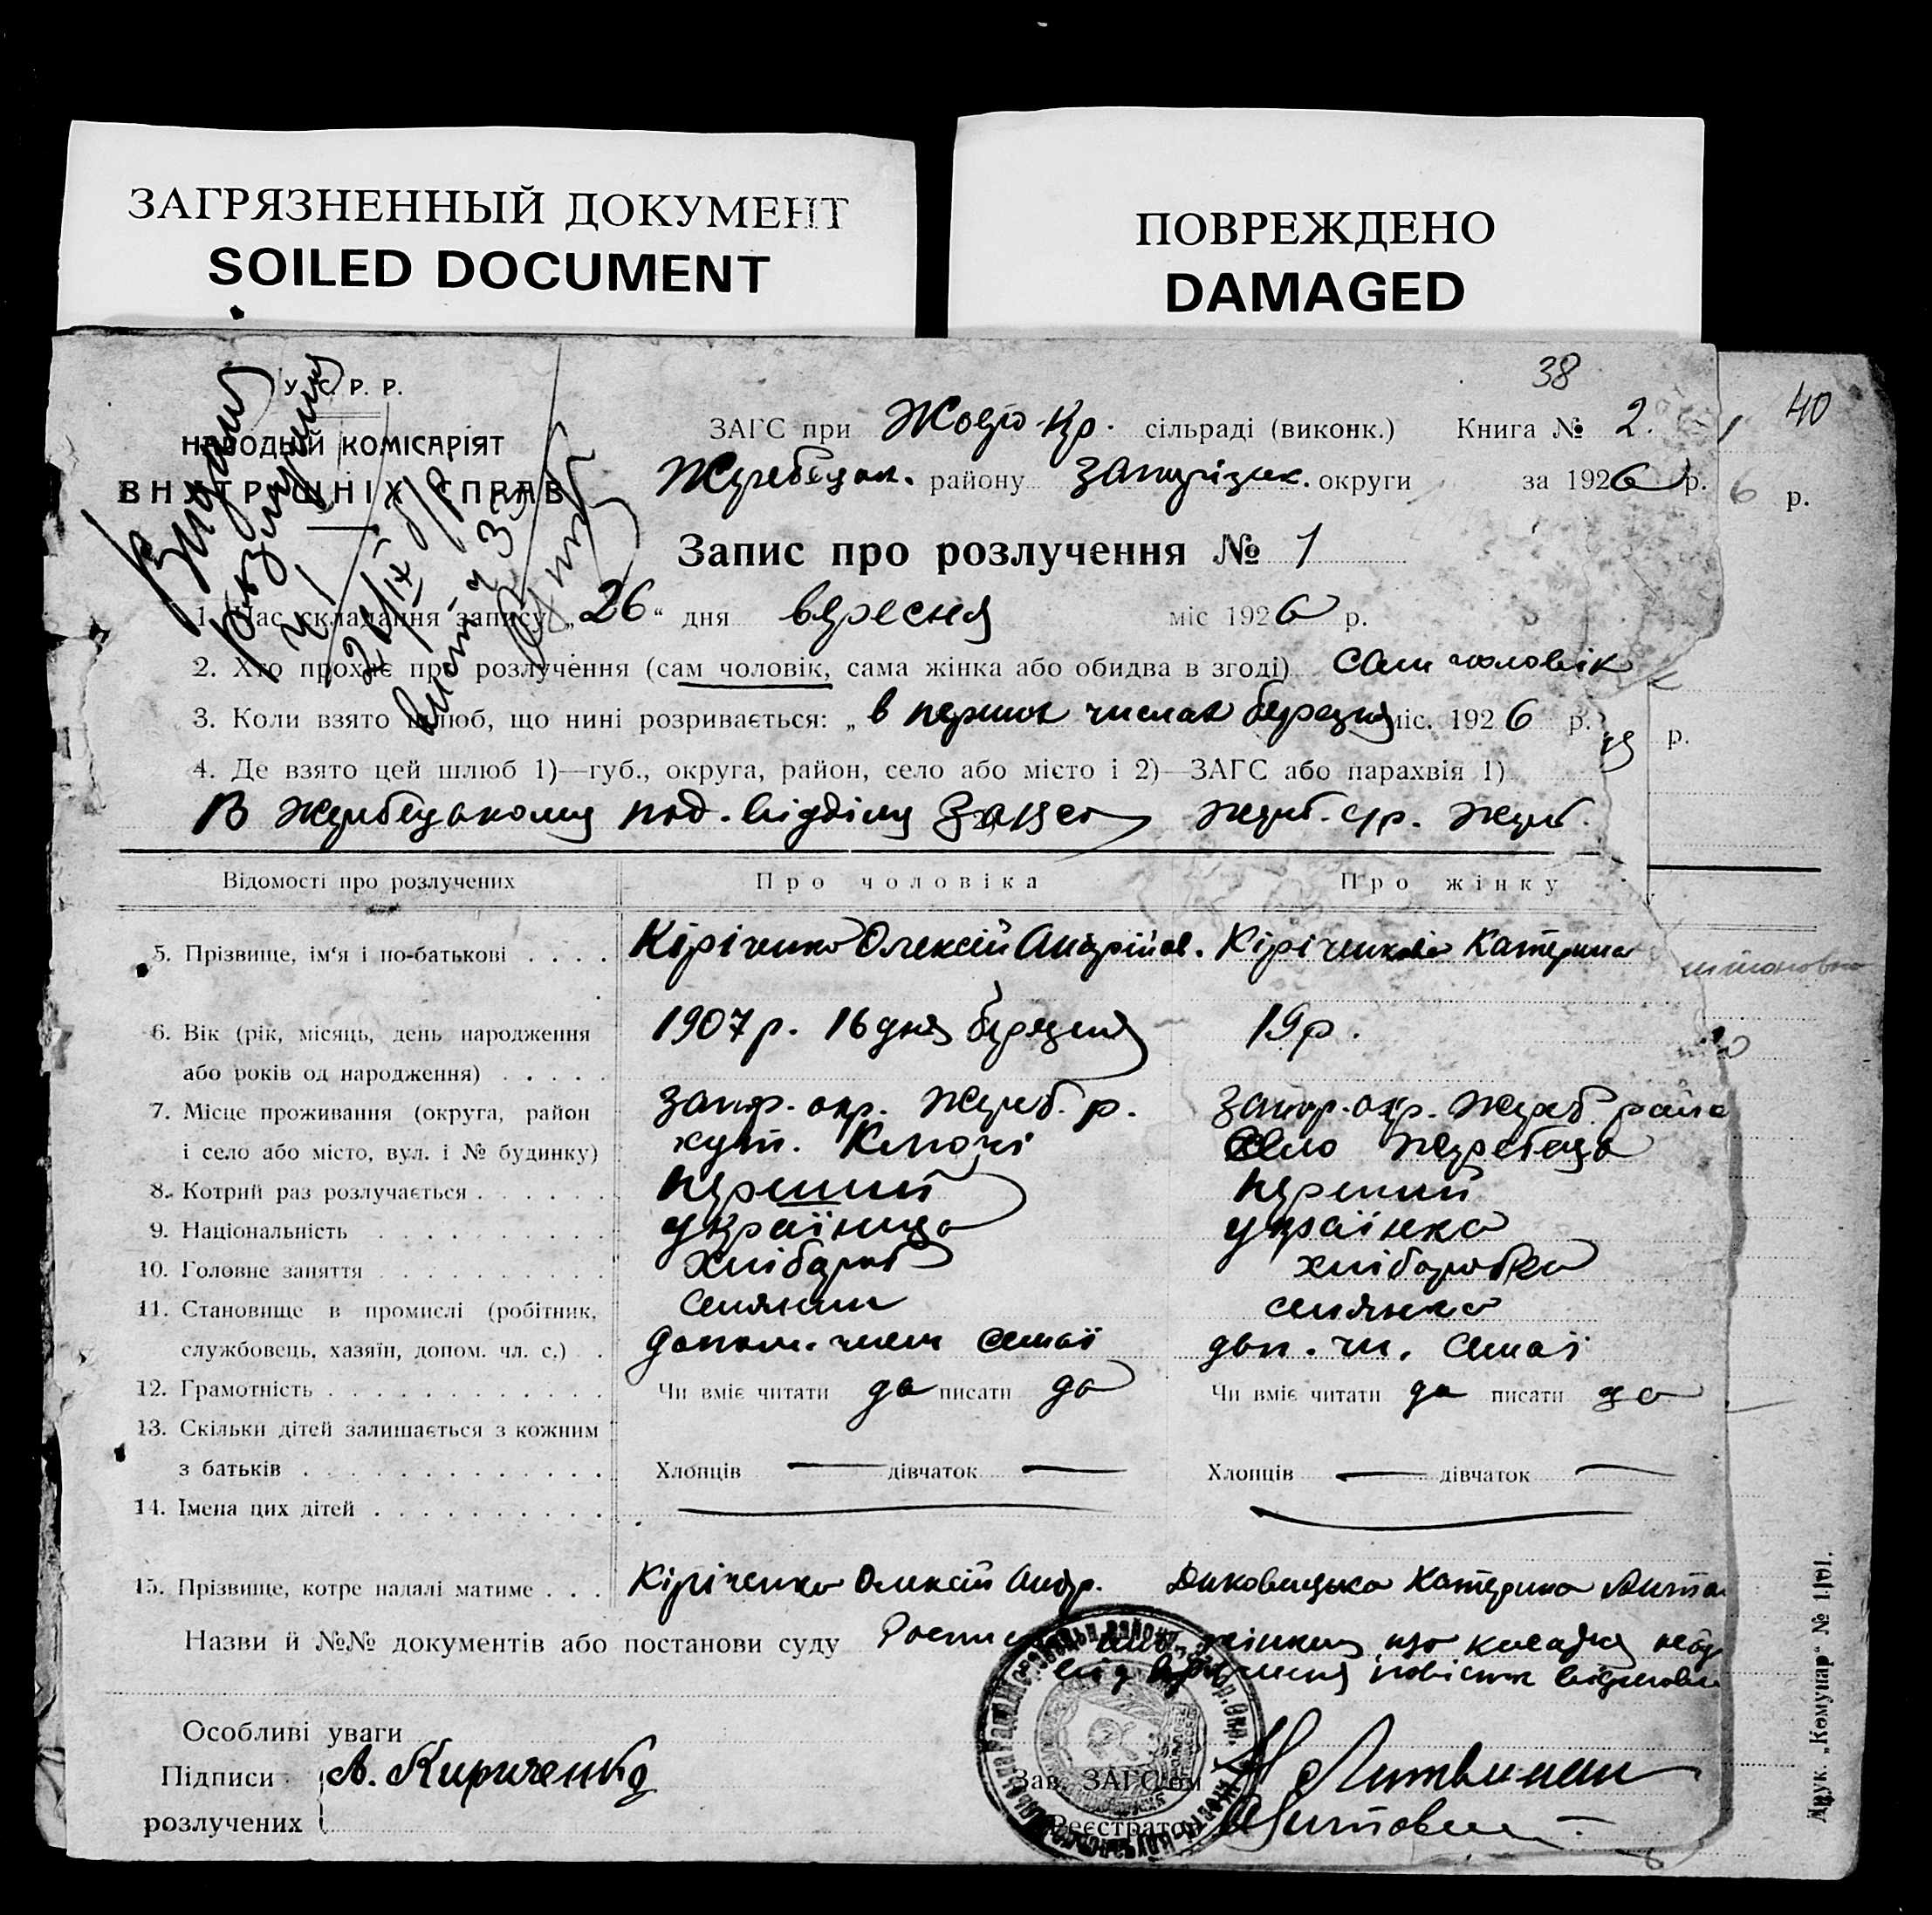 ЗАГРЯЗНЕННЫЙ ДОКУМЕНТ
SOILED DOCUMENT
ПОВРЕЖДЕНО
DAMAGED
38
40
У. С. Р. Р.
НАРОДНІЙ КОМІСАРІЯТ
ВНУТРІШНІХ СПРАВ
ЗАГС при Жовто-Кр. сільраді (виконк.) Книга № 2.
Жеребецьк. району Запорізьк. округи за 1926 р.
6 р.
Запис про розлучення № 1
1. Час складання запису „26“ дня вересня міс 1926 р.
2. Хто прохає про розлучення (сам чоловік, сама жінка або обидва в згоді) сам чоловік
3. Коли взято шлюб, що нині розривається: „ в перших числах березня міс. 1926 р.
р.
4. Де взято цей шлюб 1)—губ., округа, район, село або місто і 2)—ЗАГС або парахвія 1)
В Жеребецькому под. відділу Загсу Жереб. Жереб.
Відомості про розлучених Про чоловіка Про жінку
5. Прізвище, ім‘я і по-батькові . . . . Кіріченко Олексій Андрійов. Кіріченкова Катерина
6. Вік (рік, місяць, день народження 1907 р. 16 дня березня 19 р.
або років од народження) . . . . .
7. Місце проживання (округа, район Запор. окр. Жереб. р. Запор. окр. Жереб. райо
і село або місто, вул. і № будинку) хут. Ключі село Жеребець
8. Котрий раз розлучається . . . . . . перший перший
9. Національність . . . . . . . . . українець українка
10. Головне заняття . . . . . . . . . хлібороб хліборобка
11. Становище в промислі (робітник, селянин селянка
службовець, хазяїн, допом. чл. с.) . допом. член семьї доп. чл. семьї
12. Грамотність . . . . . . . . . . . . Чи вміє читати да писати да Чи вміє читати да писати да
13. Скільки дітей залишається з кожним
з батьків . . . . . . . . . . . . . Хлопців — дівчаток — Хлопців — дівчаток —
14. Імена цих дітей . . . . . . . . . .
15. Прізвище, котре надалі матиме . . . Кіріченко Олексій Андр. Диковицька Катерина Анто
Назви й №№ документів або постанови суду
Особливі уваги
Підписи А. Кириченко
розлучених
Зав. ЗАГС'ом Литвиненко
Реєстратор
Друк. „Комунар“ № 11101.